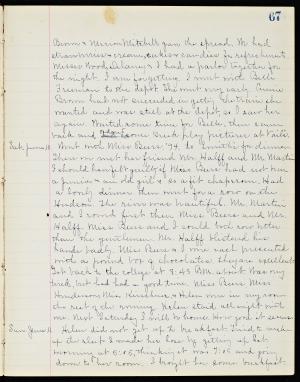 67
Brown & Merriam Mitchell gave the spread. We had
strawberries & cream, cakes & candies for refreshments.
Misses Wood, Delany & I had a parlor together for
the night. I am forgetting. I went with Bell
Freeman to the depot. She went very early. Annie
Brown had not succeeded in getting the train she
wanted and was still at the depot, so I saw her
again. Waited some for Belle, then came
back and some Greek play pictures at Vail's.
Sat. June 10. Went with Miss Beers '94, to Smith's for dinner.
There we met her friend Mr. Halff and Mr. Martin
I should have felt guilty if Miss Beers had not been
a junior & an old girl & so a fit chaperone. Had
a lovely dinner then went for a row on the
Hudson. The river was beautiful. Mr. Martin
and I rowed first then Miss Beers and Mr.
Halff. Miss Beers and I could both row better
than the gentlemen. Mr. Halff blistered his
hands badly. Miss Beers & I were each presented
with a pound box of chocolates. They are excellent.
Got back to the college at 8:45 P.M. Was very
tired, but had had a good time. Miss Beers, Miss
Henderson, Miss & Helen were in my room
the rest of the evening. Helen stayed all night with
me. Next Saturday I will be home. How good it seems.
Sun. June 11. Helen did not get up to breakfast. Tried to make
up the sleep I made her lose by getting up last
morning at 6:05, thinking it was 7:05 and going
down to her room. I brought her some breakfast.